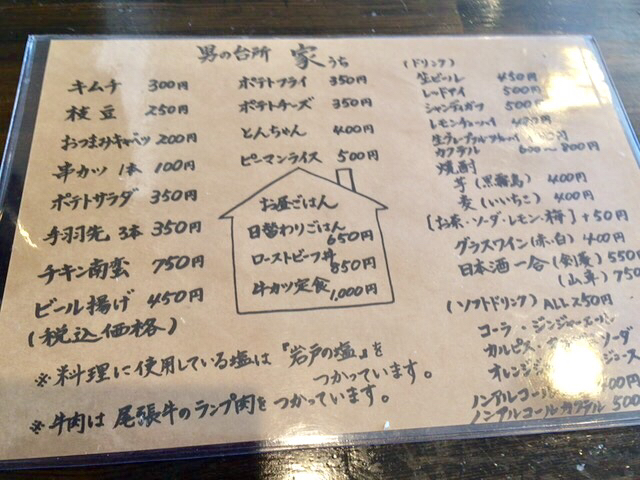 男の台所 家うち
キムチ 300円
枝豆 250円
おつまみキャベツ 200円
串カツ 1本 100円
ポテトサラダ 350円
手羽先 3本 350円
チキン南蛮 750円
ビール揚げ 450円
(税込価格)
ポテトフライ 350円
ポテトチーズ 350円
とんちゃん 400円
ピーマンライス 500円
お昼ごはん
日替わりごはん
650円
ローストビーフ丼
850円
牛カツ定食 1,000円
※料理に使用している塩は『岩戸の塩』を
つかっています。
※牛肉は尾張牛のランプ肉をつかっています。
(ドリンク)
生ビール 450円
レッドアイ 500円
シャンディガフ 500
レモンチューハイ
カクテル 600〜800円
焼酎
芋(黒霧島) 400円
麦(いいちこ) 400円
[お茶・ソーダ・レモン・梅] +50円
グラスワイン(赤・白) 400円
日本酒一合(剣菱) 550
(山車) 750
(ソフトドリンク) ALL 250円
コーラ・ジンジャーエール
カルピス ソーダ
オレンジ ジュース
ノンアルコール 400円
ノンアルコールカクテル 500